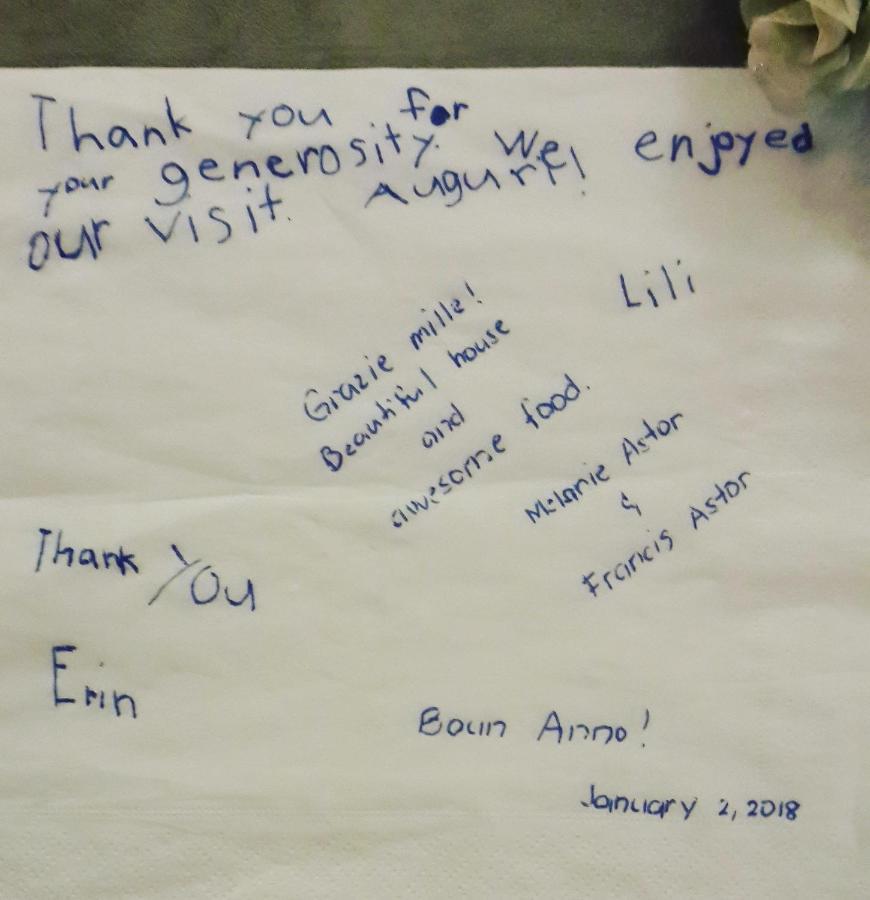 Thank you for
your generosity. We enjoyed
our visit. Augurri!
Lili
Grazie mille!
Beautiful house
and
awesome food.
Melanie Astor
&
Francis Astor
Thank You
Erin
Boun Anno!
January 2, 2018